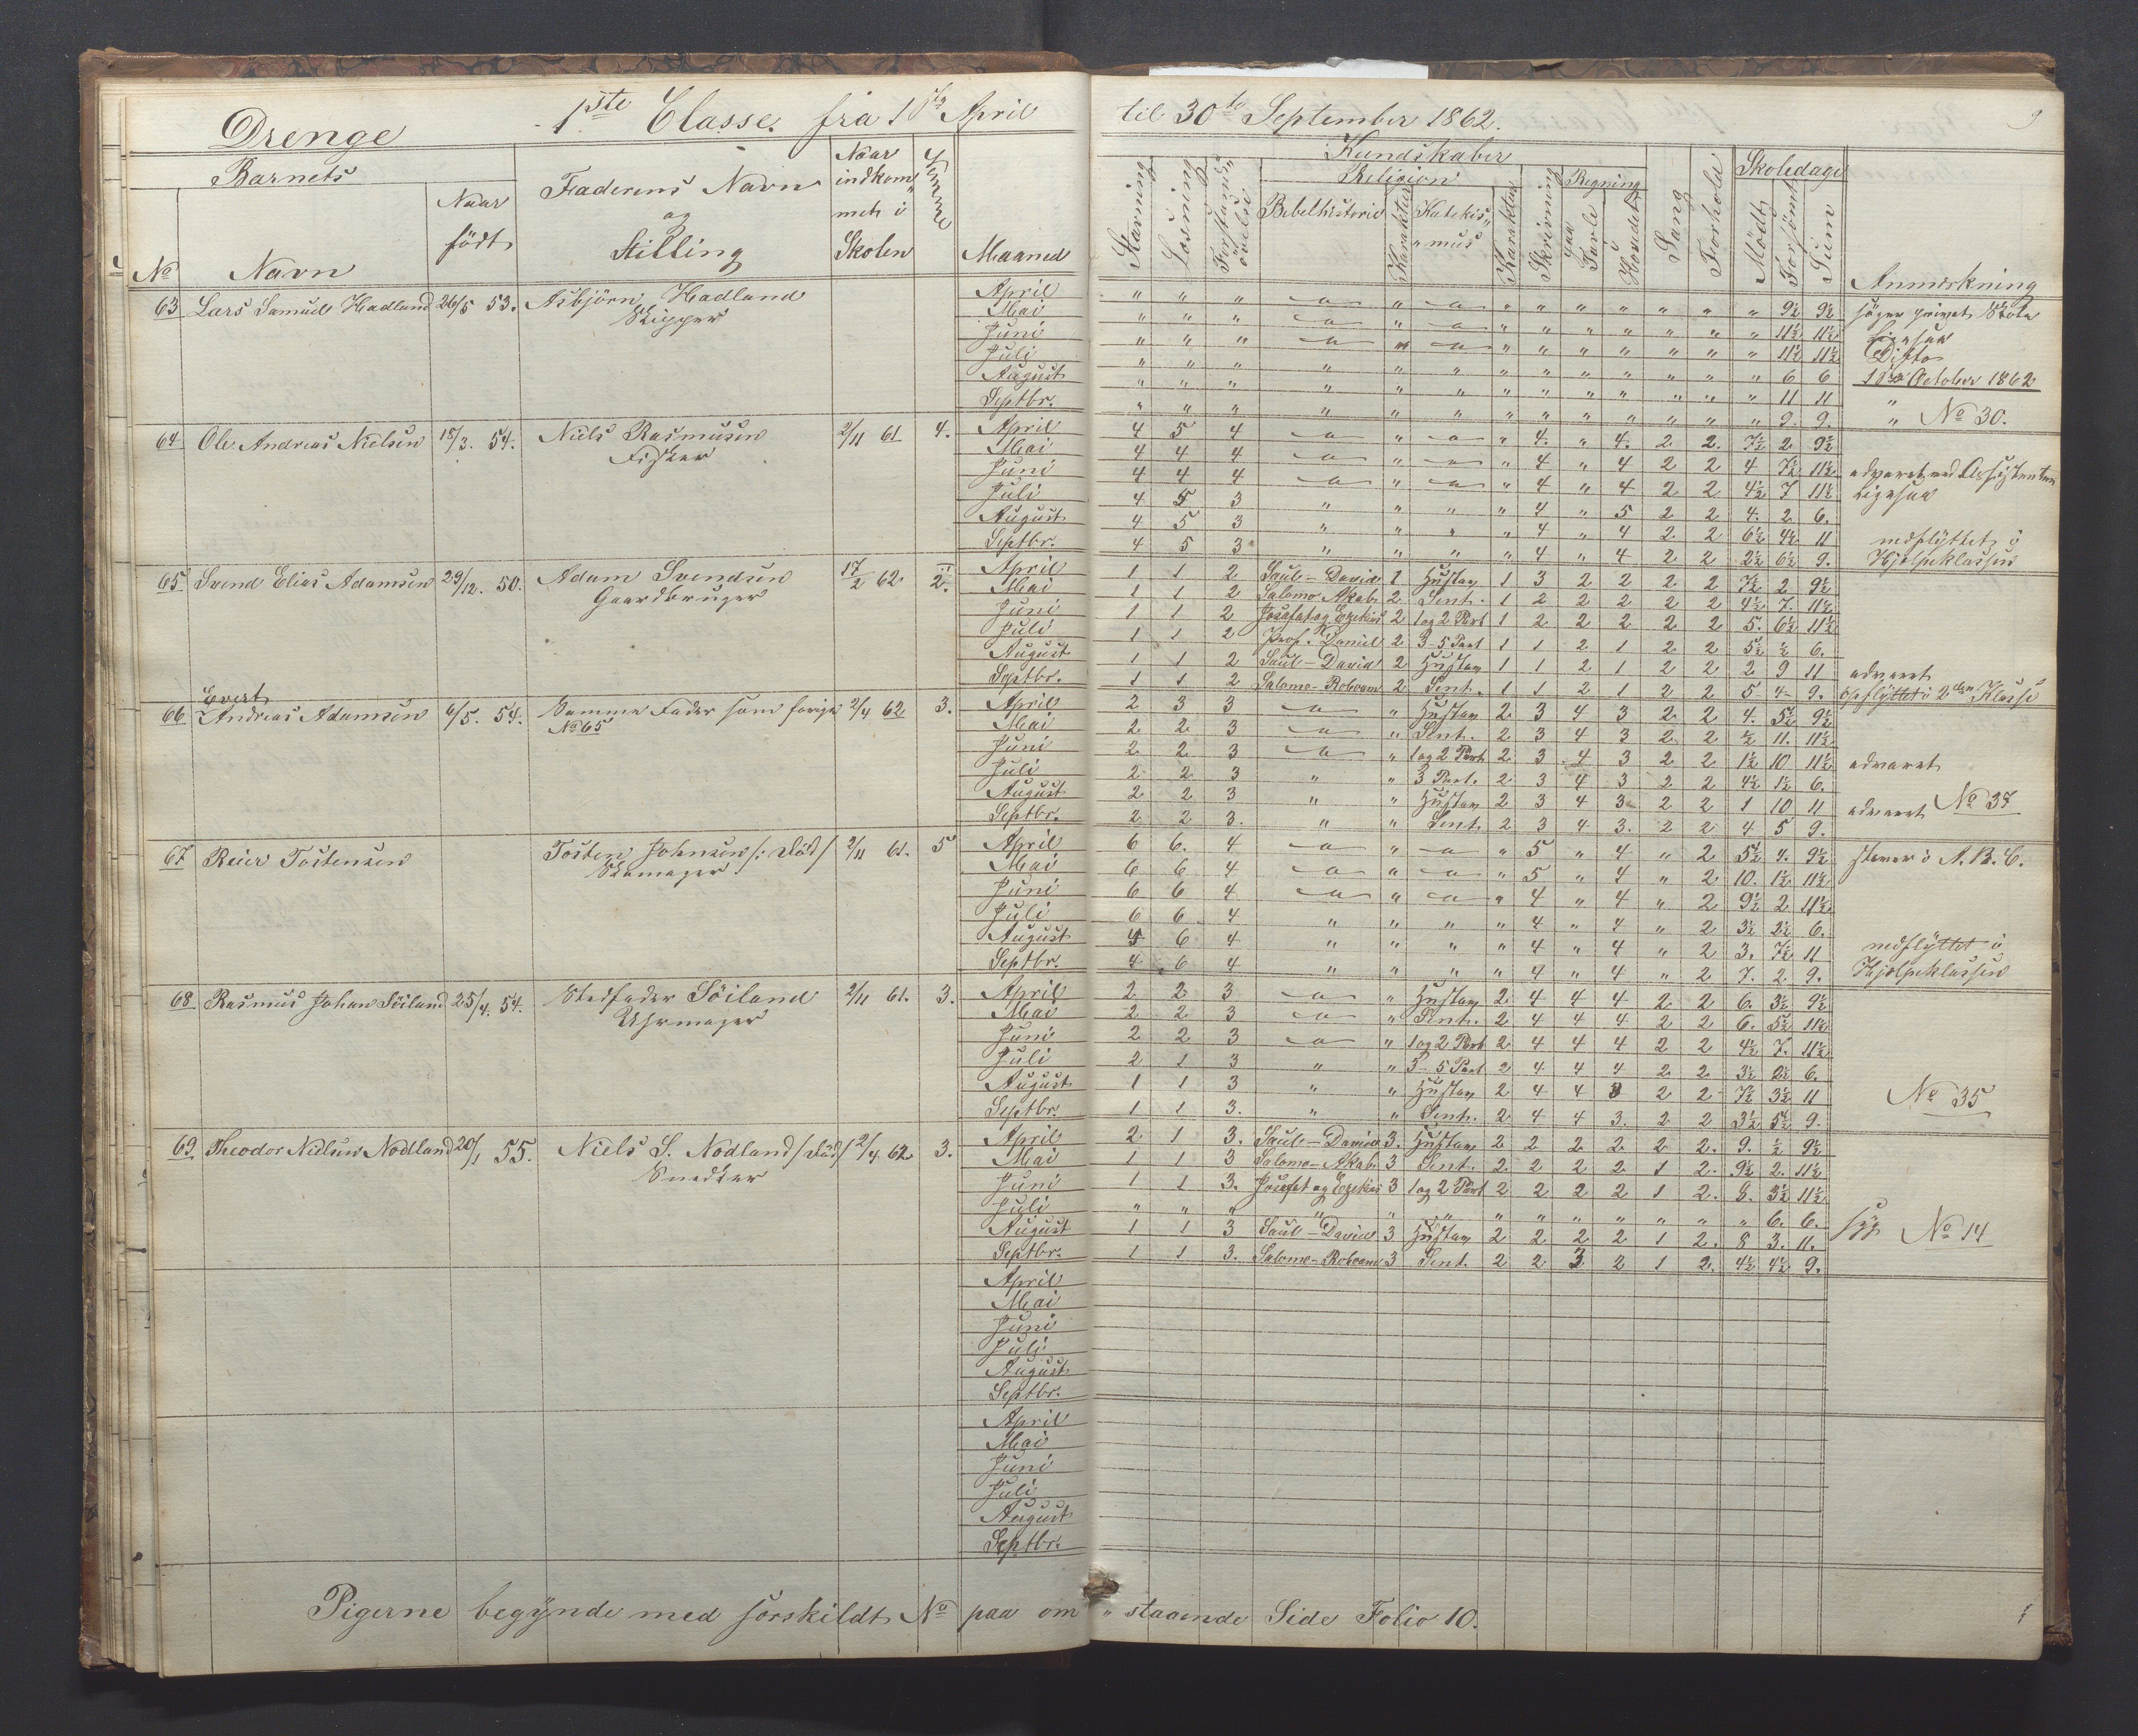 Drenge 1ste Classe. fra 1ste April til 30te September 1862. 9
Barnets
No Navn Naar født Faderens Navn og Stilling Naar indkommet i Skolen Evne Maaned
Stavning Læsning Forstandsøvelse Kundskaber Religion Bibelhistorie Karakter Katekismus Karakter Skrivning Regning paa Tavle Hovedet Sang Forhold Skoledage Mødt Forsømt Sum Anmærkning
63 Lars Samuel Hadland 26/5 53. Asbjørn Hadland
Skipper
April " " " " " " " " " " " " " 9½ 9½ søger privat Skole
Mai " " " " " " " " " " " " " 11½ 11½ Ligesaa
Juni " " " " " " " " " " " " " 11½ 11½ Ditto
Juli " " " " " " " " " " " " " 6 6 1ste October 1862
August " " " " " " " " " " " " " 11 11 "
Septbr. " " " " " " " " " " " " " 9. 9. " No 30.
64 Ole Andreas Nielsen 18/3. 54. Niels Rasmussen 2/11 61. 4.
Fisker
April 4 5 4 " " " " 4. " 4. 2 2. 7½ 2 9½
Mai 4 4 4 " " " " 4 " 4 2 2 4 7½ 11½ advaret ved Assistenten
Juni 4 4 4 " " " " 4 " 4 2 2 4½ 7 11½ Ligesaa
Juli 4 5 3 " " " " 4 " 5 2 2 4. 2 6.
August 4 5 3 " " " " 4 " 4 2 2 6½ 4½ 11 nedflyttet i
Septbr. 4 5 3 " " " " 4 " 4 2 2 2½ 6½ 9. Hjelpeklassen
65 Svend Elias Adamsen 29/12. 50. Adam Svendsen 17/2 62 2.
Gaardbruger
April 1 1 2 Saul - David 1 Hustav 1 3 2 2 2 2 7½ 2 9½
Mai 1 1 2 Salomo Akab. 2 Sent. 1 2 2 2 2 2 4½ 7. 11½
Juni 1 1 2 Josafat og Ezekias 2 1 og 2 Part 1 2 2 2 2 2 5. 6½ 11½
Juli 1 1 2 Prof. Daniel 2 3-5 Part 1 1 2 1 2 2 5½ ½ 6.
August 1 1 2 Saul - David 2 Hustav 1 1 2 1 2 2 2 9 11 advaret
Septbr. 1 1 2 Salomo - Roboam 2 Sent. 1 1 2 1 2 2 5 4 9. opflyttet i 2den Klasse
66 Evert Andreas Adamsen 6/5. 54. Samme Fader som forige 2/4 62 3.
No 65
April 2 3 3 " " Hustav 2 3 4 3 2 2 4. 5½ 9½
Mai 2 2 3 " " Sent. 2 3 4 3 2 2 ½ 11. 11½
Juni 2 2 3 " " 1 og 2 Part. 2 3 4 3 2 2 1½ 10 11½ advaret
Juli 2 2 3 " " 3 Part. 2 3 4 3 2 2 4½ 1½ 6.
August 2 2 3 " " Hustav 2 3 4 3 2 2 1 10 11 advaret No 37
Septbr. 2 2 3. " " Sent 2 3 4 3. 2 2 4 5 9.
67 Reier Tostensen Tosten Johnsen /: død/ 2/11 61. 5
Skomager
April 6 6. 4 " " " " 5 " 4 " 2 5½ 4. 9½ staver i A.B.C.
Mai 6 6 4 " " " " 5 " 4 " 2 10. 1½ 11½
Juni 6 6 4 " " " " 4 " 4 " 2 9½ 2 11½
Juli 6 6 4 " " " " 4 " 4 " 2 3½ 2½ 6.
August 4 6 4 " " " " 4 " 4 " 2 3. 7½ 11 nedflyttet i
Septbr. 4 6 4 " " " " 4 " 4 " 2 7. 2 9. Hjelpeklassen
68 Rasmus Johan Søiland 25/4. 54. Stedfader Søiland 2/11 61. 3.
Uhrmager
April 2 2 3 " " Hustav 2 4 4 4 2 2 6. 3½ 9½
Mai 2 2 3 " " Sent. 2 4 4 4 2 2 6. 5½ 11½
Juni 2 2 3 " " 1 og 2 Part 2 4 4 4 2 2 4½ 7. 11½
Juli 2 1 3 " " 3-5 Part 2 4 4 4 2 2 3½ 2½ 6.
August 1 1 3 " " Hustav 2 4 4 3 2 2 7½ 3½ 11 No 35
Septbr. 1 1 3. " " Sent. 2 4 4 3. 2 2 3½ 5½ 9.
69 Theodor Nielsen Nodland 20/1 55. Niels S. Nodland /død/ 2/4 62 3.
Snedker
April 2 1 3. Saul - David 3. Hustav 2 2 2 2 2 2. 9. ½ 9½
Mai 1 1 3 Salomo - Akab. 3 Sent. 2 2 2 2 1 2. 9½ 2. 11½
Juni 1 1 3. Josafat og Ezekias 3 1 og 2 Part 2 2 2 2 1 2. 8. 3½ 11½
Juli " " " " " " " " " " " " " 6. 6. syg No 14
August 1 1 3 Saul - David 3 Hustav 2 2 2 2 1 2. 8 3. 11.
Septbr. 1 1 3. Salomo - Roboam 3 Sent. 2 2 3 2 1 2. 4½ 4½ 9.
April
Mai
Juni
Juli
August
Septbr.
April
Mai
Juni
Juli
August
Septbr.
Pigerne begynde med særskildt No paa om" staaende Side Folio 10.